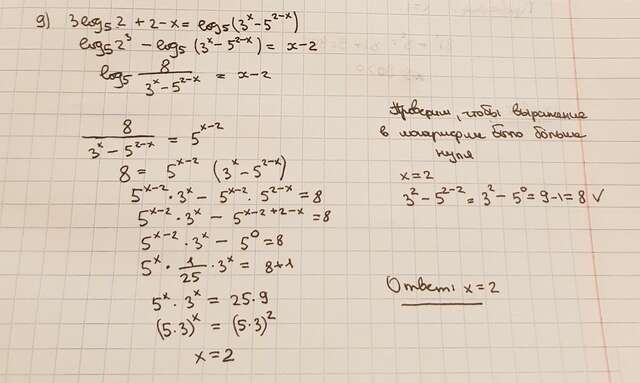 g) 3log₅2 + 2 - x = log₅(3ˣ - 5²⁻ˣ)
log₅2³ - log₅(3ˣ - 5²⁻ˣ) = x - 2
log₅ 8/(3ˣ - 5²⁻ˣ) = x - 2
8/(3ˣ - 5²⁻ˣ) = 5ˣ⁻²
8 = 5ˣ⁻² (3ˣ - 5²⁻ˣ)
5ˣ⁻² · 3ˣ - 5ˣ⁻² · 5²⁻ˣ = 8
5ˣ⁻² · 3ˣ - 5ˣ⁻²⁺²⁻ˣ = 8
5ˣ⁻² · 3ˣ - 5⁰ = 8
5ˣ · 1/25 · 3ˣ = 8+1
5ˣ · 3ˣ = 25 · 9
(5·3)ˣ = (5·3)²
x = 2
Проверим, чтобы выражение
в логарифме было больше
нуля
x = 2
3² - 5²⁻² = 3² - 5⁰ = 9 - 1 = 8 ✓
Ответ: x = 2